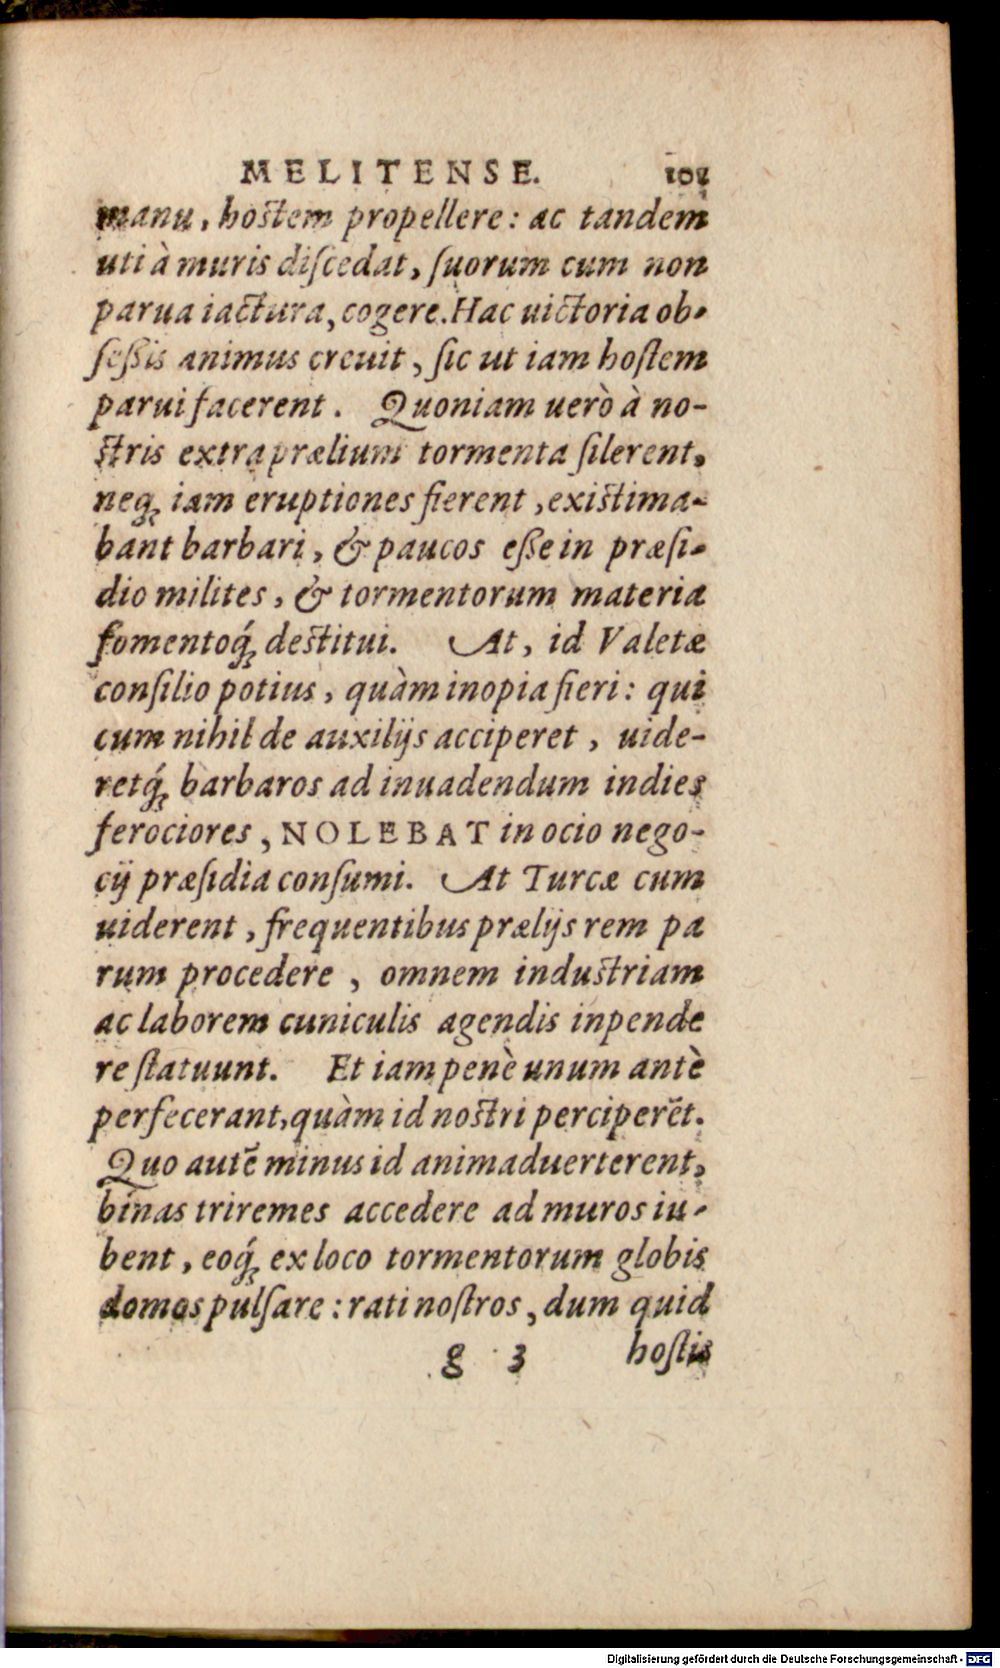 MELITENSE. 101
manu, hostem propellere: ac tandem
uti à muris diſcedat, ſuorum cum non
parua iactura, cogere. Hac uictoria ob-
ſeßis animus creuit, ſic ut iam hoſtem
parui facerent. Quoniam uerò à no-
stris extra prælium tormenta ſilerent,
neq; iam eruptiones fierent, existima-
bant barbari, & paucos eße in præſi-
dio milites, & tormentorum materia
fomentoq́; destitui. At, id Valetæ
conſilio potius, quàm inopia fieri: qui
cum nihil de auxilijs acciperet, uide-
retq́; barbaros ad inuadendum indies
ferociores, NOLEBAT in ocio nego-
cij præſidia conſumi. At Turcæ cum
uiderent, frequentibus prælijs rem pa
rum procedere, omnem industriam
ac laborem cuniculis agendis inpende
re ſtatuunt. Et iam penè unum antè
perfecerant, quàm id nostri perciperēt.
Quo autē minus id animaduerterent,
binas triremes accedere ad muros iu-
bent, eoq́; ex loco tormentorum globis
domos pulſare: rati noſtros, dum quid
g 3 hoſtis
Digitalisierung gefördert durch die Deutsche Forschungsgemeinschaft - DFG